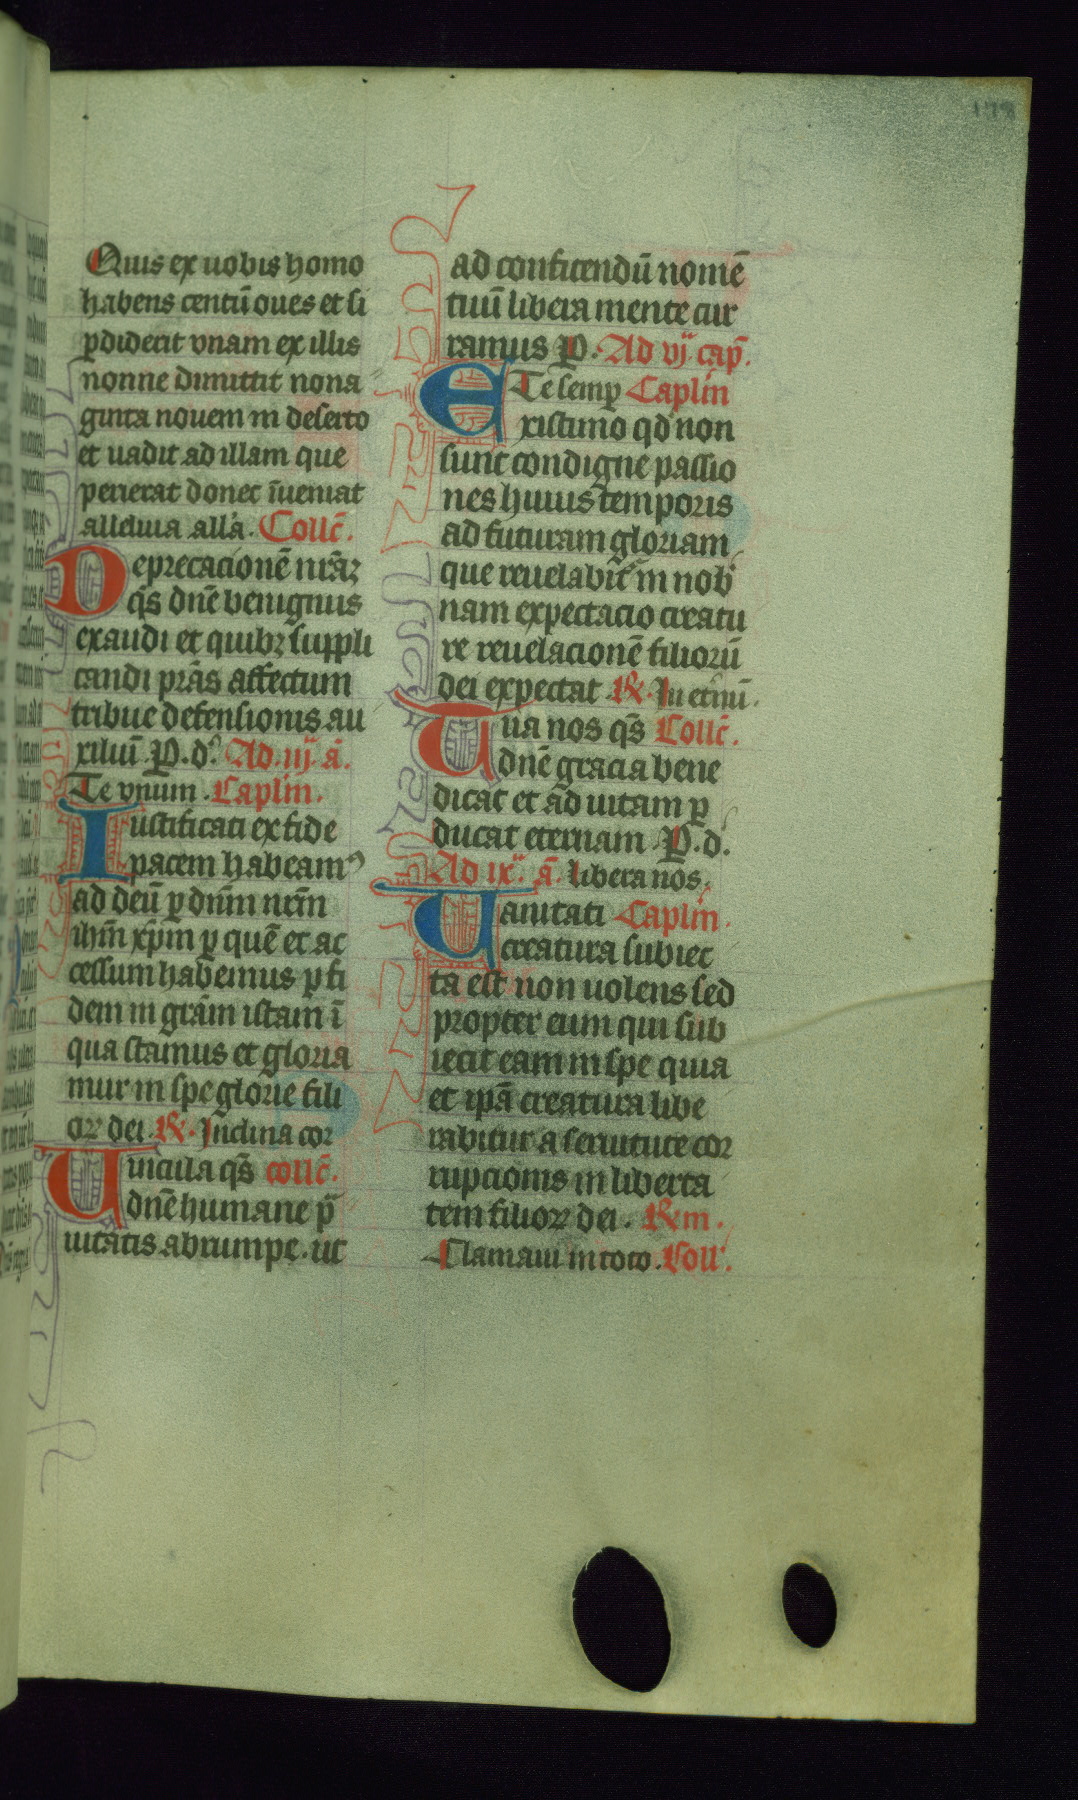 Quis ex uobis homo
habens centū oues et si
ꝑdiderit vnam ex illis
nonne dimittit nona
ginta nouem in deserto
et uadit ad illam que
perierat donec īueniat
alleluia all'a. Collc̄.
Deprecacionē nr̄aꝝ
qs̄ dn̄e benignius
exaudi et quibꝫ suppli
candi pr̄as affectum
tribue defensionis au
xiliū P. d. Ad. iij. a̅.
Te vnum. Caplm̄.
Iustificati ex fide
pacem habeamꝰ
ad deū ꝑ dn̄m nr̄m
ihm̄ xp̄m ꝑ quē et ac
cessum habemus ꝑ fi
dem in grām istam ī
qua stamus et gloria
mur in spe glorie fili
oꝝ dei. R. Inclina cor
Uincula qs̄ collc̄.
dn̄e humane p̄
uitatis abrumpe. ut
ad confitendū nomē
tuū libera mente cur
ramus P. Ad vj cap̄.
Te semꝑ Caplm̄
Existimo qd̓ non
sunt condigne passio
nes huius temporis
ad futuram gloriam
que reuelabit̓ in nob̓
nam expectacio creatu
re reuelacionē filiorū
dei expectat. R. In eternū.
Tua nos qs̄ Collc̄.
dn̄e gracia bene
dicat et ad uitam ꝑ
ducat eternam P. d.
Ad ix. a̅. libera nos.
Uanitati Caplm̄.
creatura subiec
ta est non uolens sed
propter eum qui sub
iecit eam in spe quia
et ip̄a creatura libe
rabitur a seruitute cor
rupcionis in liberta
tem filioꝝ dei. Rm.
Clamaui in toto. Coll'.